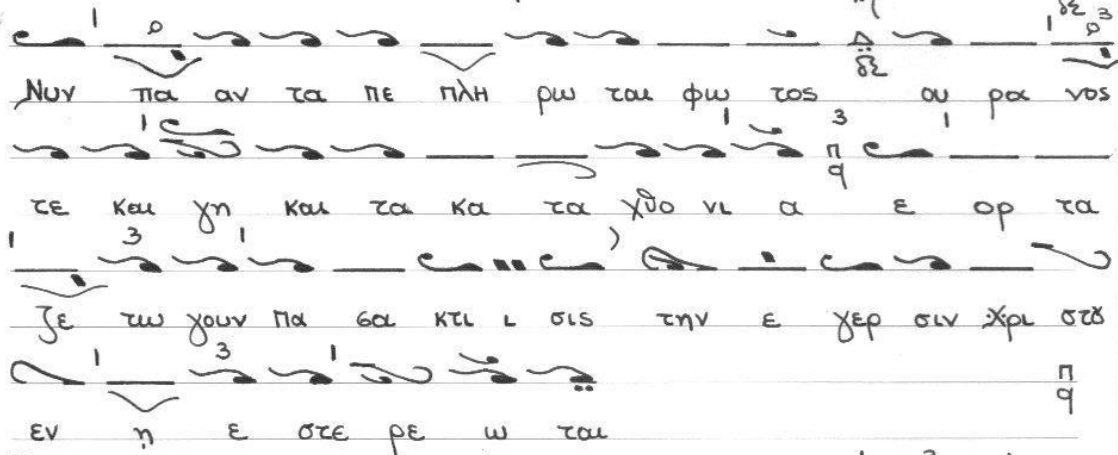 Νυν πα αν τα πε πλη ρω ται φω τος ου ρα νος
τε και γη και τα κα τα χθο νι α ε ορ τα
ζε τω γουν πα σα κτι ι σις την ε γερ σιν Χρι στȣ
εν η ε στε ρε ω ται